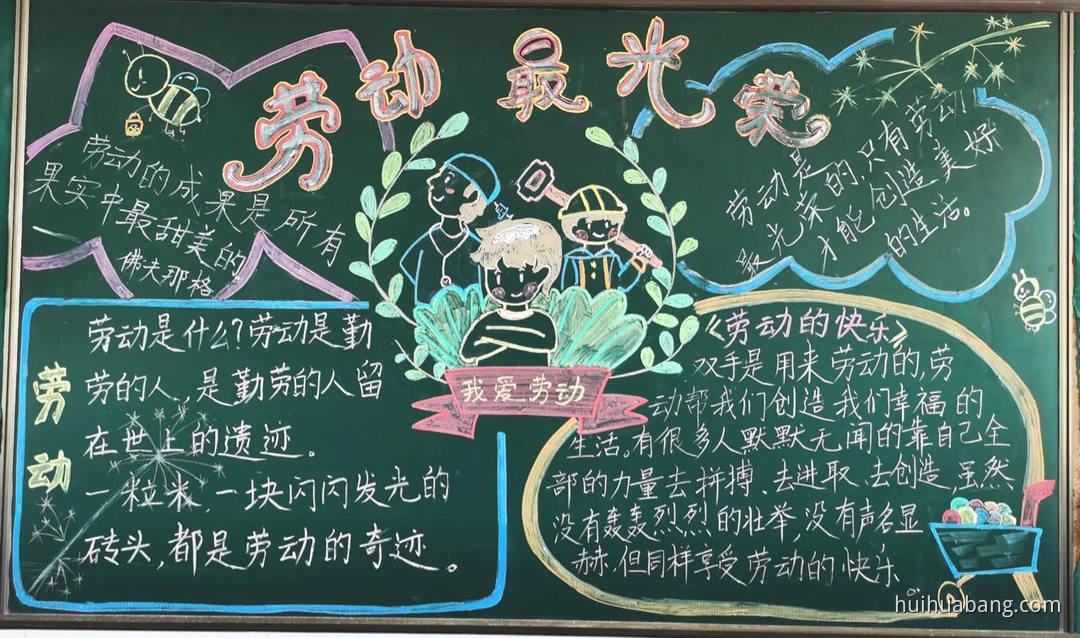 劳动最光荣
劳动的成果是所有
果实中最甜美的
佛夫那格
劳动是
最光荣的,只有劳动
才能创造美好
的生活。
我爱劳动
劳动
劳动是什么?劳动是勤
劳的人,是勤劳的人留
在世上的遗迹。
一粒米,一块闪闪发光的
砖头,都是劳动的奇迹。
《劳动的快乐》
双手是用来劳动的,劳
动帮我们创造我们幸福的
生活。有很多人默默无闻的靠自己全
部的力量去拼搏、去进取、去创造,虽然
没有轰轰烈烈的壮举,没有声名显
赫,但同样享受劳动的快乐
huihuabang.com